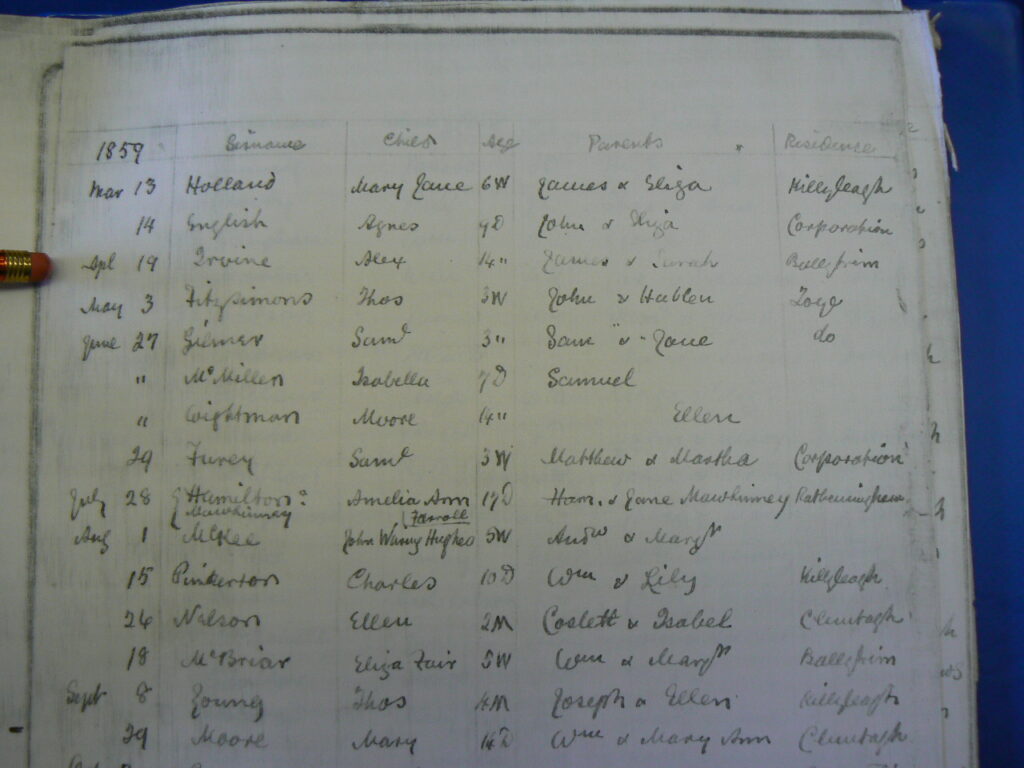 1859 Sirname Child Age Parents " Residence
Mar 13 Holland Mary Jane 6W James & Eliza Killyleagh
14 English Agnes 9D John & Eliza Corporation
Apl 19 Irvine Alex 14" James & Sarah Ballytrim
May 3 Fitzsimons Thos 3W John & Toye
June 27 Gilmer Saml 3" Sam " & " Jane do
" McMillen Isabella 7D Samuel
" Wightman Moore 14" Ellen
29 Furey Saml 3W Matthew & Martha Corporation
July 28 Hamilton Amelia Ann 17D Ham. & Jane Mawhinney
Mawhinney Farrell
Aug 1 McKee John Hughes 5W Andw & Margt
15 Pinkerton Charles 10D Wm & Lily Killyleagh
24 Nelson Ellen 2M Coslett & Isabel Cluntagh
18 McBriar Eliza Fair 5W Wm & Margt Ballytrim
Sept 8 Young Thos 4M Joseph & Ellen Killyleagh
29 Moore Mary 14D Wm & Mary Ann Cluntagh